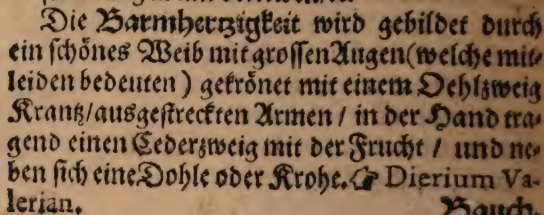 Die Barmhertzigkeit wird gebildet durch
ein schönes Weib mit grossen Augen (welche mit-
leiden bedeuten) gekrönet mit einem Oehlzweig
Krantz/ausgestreckten Armen / in der Hand tra-
gend einen Cederzweig mit der Frucht / und ne-
ben sich eine Dohle oder Krohe. ☞ Dierium Va-
lerian.
Bauch.